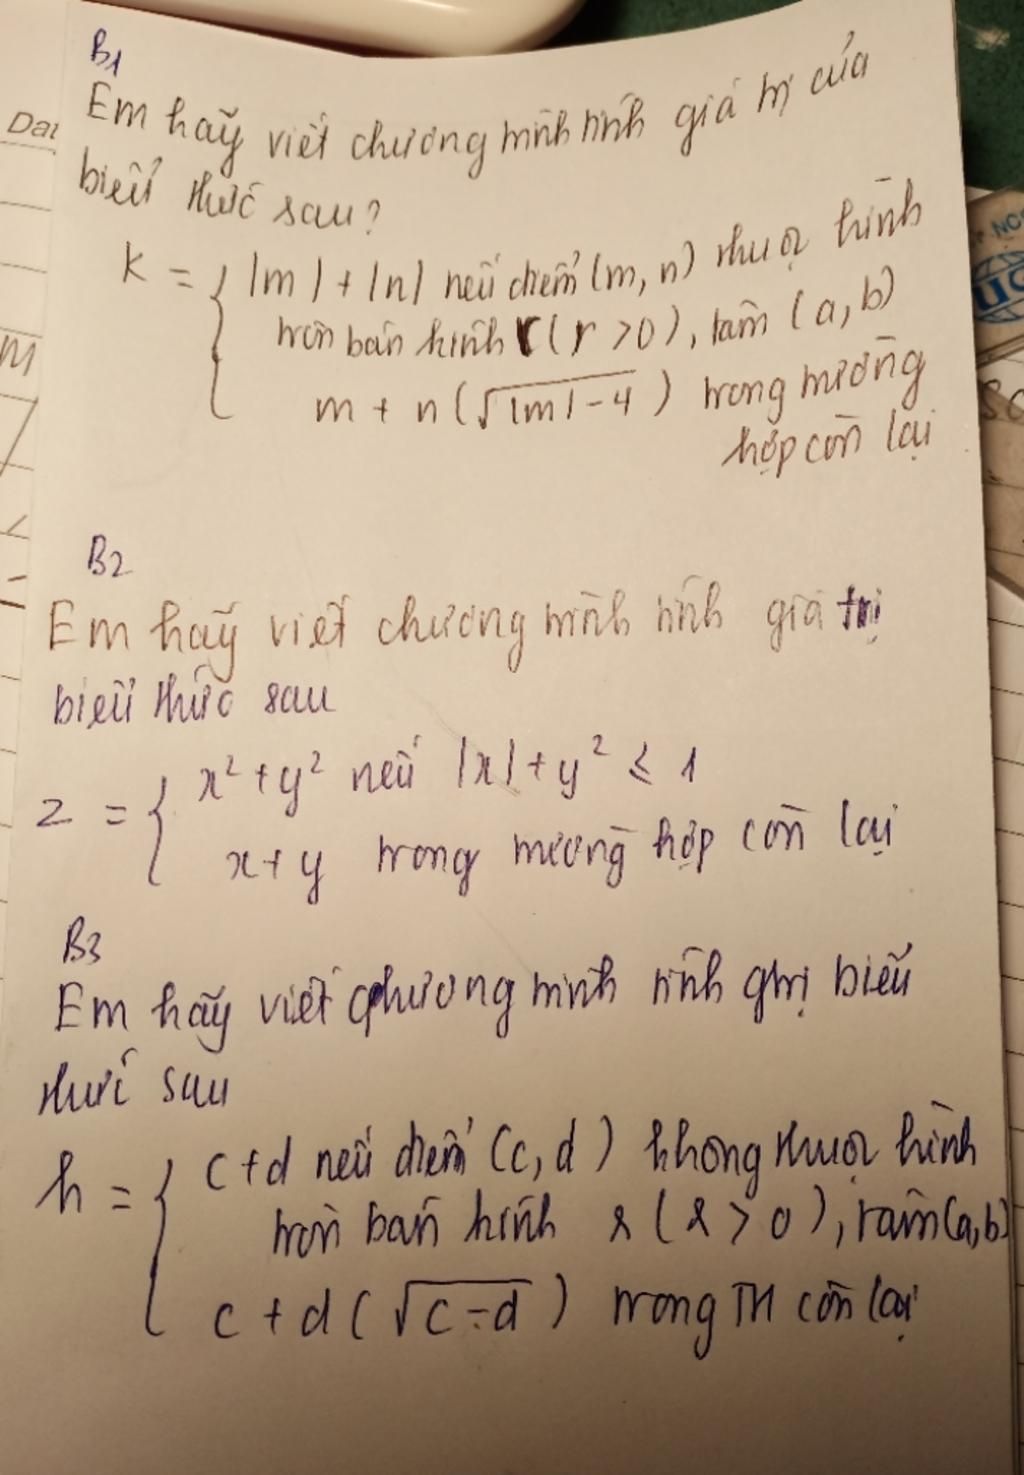 B1
Em hãy viết chương trình tính giá trị của
biểu thức sau?
K = { |m| + |n| nếu điểm (m, n) thuộc hình
tròn bán kính r (r > 0), tâm (a, b)
m + n (√|m| - 4) trong trường
hợp còn lại
B2
Em hãy viết chương trình tính giá trị
biểu thức sau
z = { x² + y² nếu |x| + y² ≤ 1
x + y trong trường hợp còn lại
B3
Em hãy viết chương trình tính gtrị biểu
thức sau
h = { c + d nếu điểm (c, d) không thuộc hình
tròn bán kính r (r > 0), tâm (a, b)
c + d (√c - d) trong TH còn lại
Dat
M